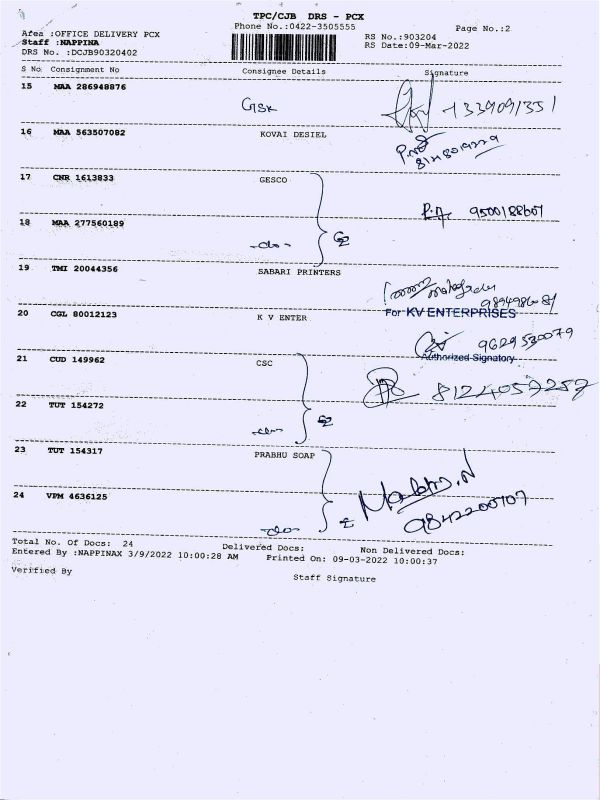 TPC/CJB DRS - PCX
Phone No.:0422-3505555
Page No.:2
Area :OFFICE DELIVERY PCX
Staff :NAPPINA
DRS No. :DCJB90320402
RS No.:903204
RS Date:09-Mar-2022
S No Consignment No Consignee Details Signature
15 MAA 286948876
GSK
1339091351
16 MAA 563507082 KOVAI DESIEL
17 CNR 1613833 GESCO
9500188607
18 MAA 277560189
-do-
19 TMI 20044356 SABARI PRINTERS
20 CGL 80012123 K V ENTER
For KV ENTERPRISES
9629530079
Authorized Signatory
21 CUD 149962 CSC
8124057257
22 TUT 154272
-do-
23 TUT 154317 PRABHU SOAP
24 VPM 4636125
9842200707
-do-
Total No. Of Docs: 24 Delivered Docs: Non Delivered Docs:
Entered By :NAPPINAX 3/9/2022 10:00:28 AM Printed On: 09-03-2022 10:00:37
Verified By
Staff Signature